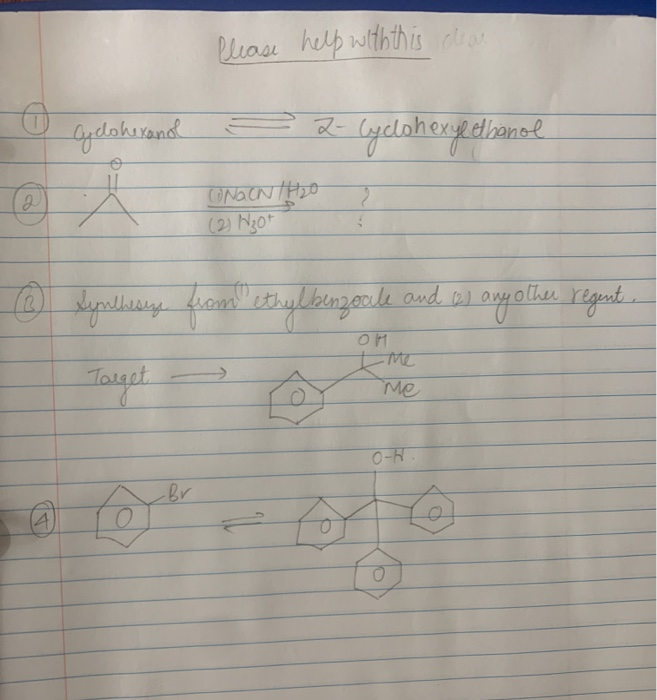 Please help withthis dear
① Cyclohexanol ⇌ 2- Cyclohexylethanol
O
② (1) NaCN / H2O ?
(2) H3O+
③ Synthesize from (1) ethylbenzoate and (2) any other regent.
OH
Target → Me
Me
O-H
④ Br ⇌